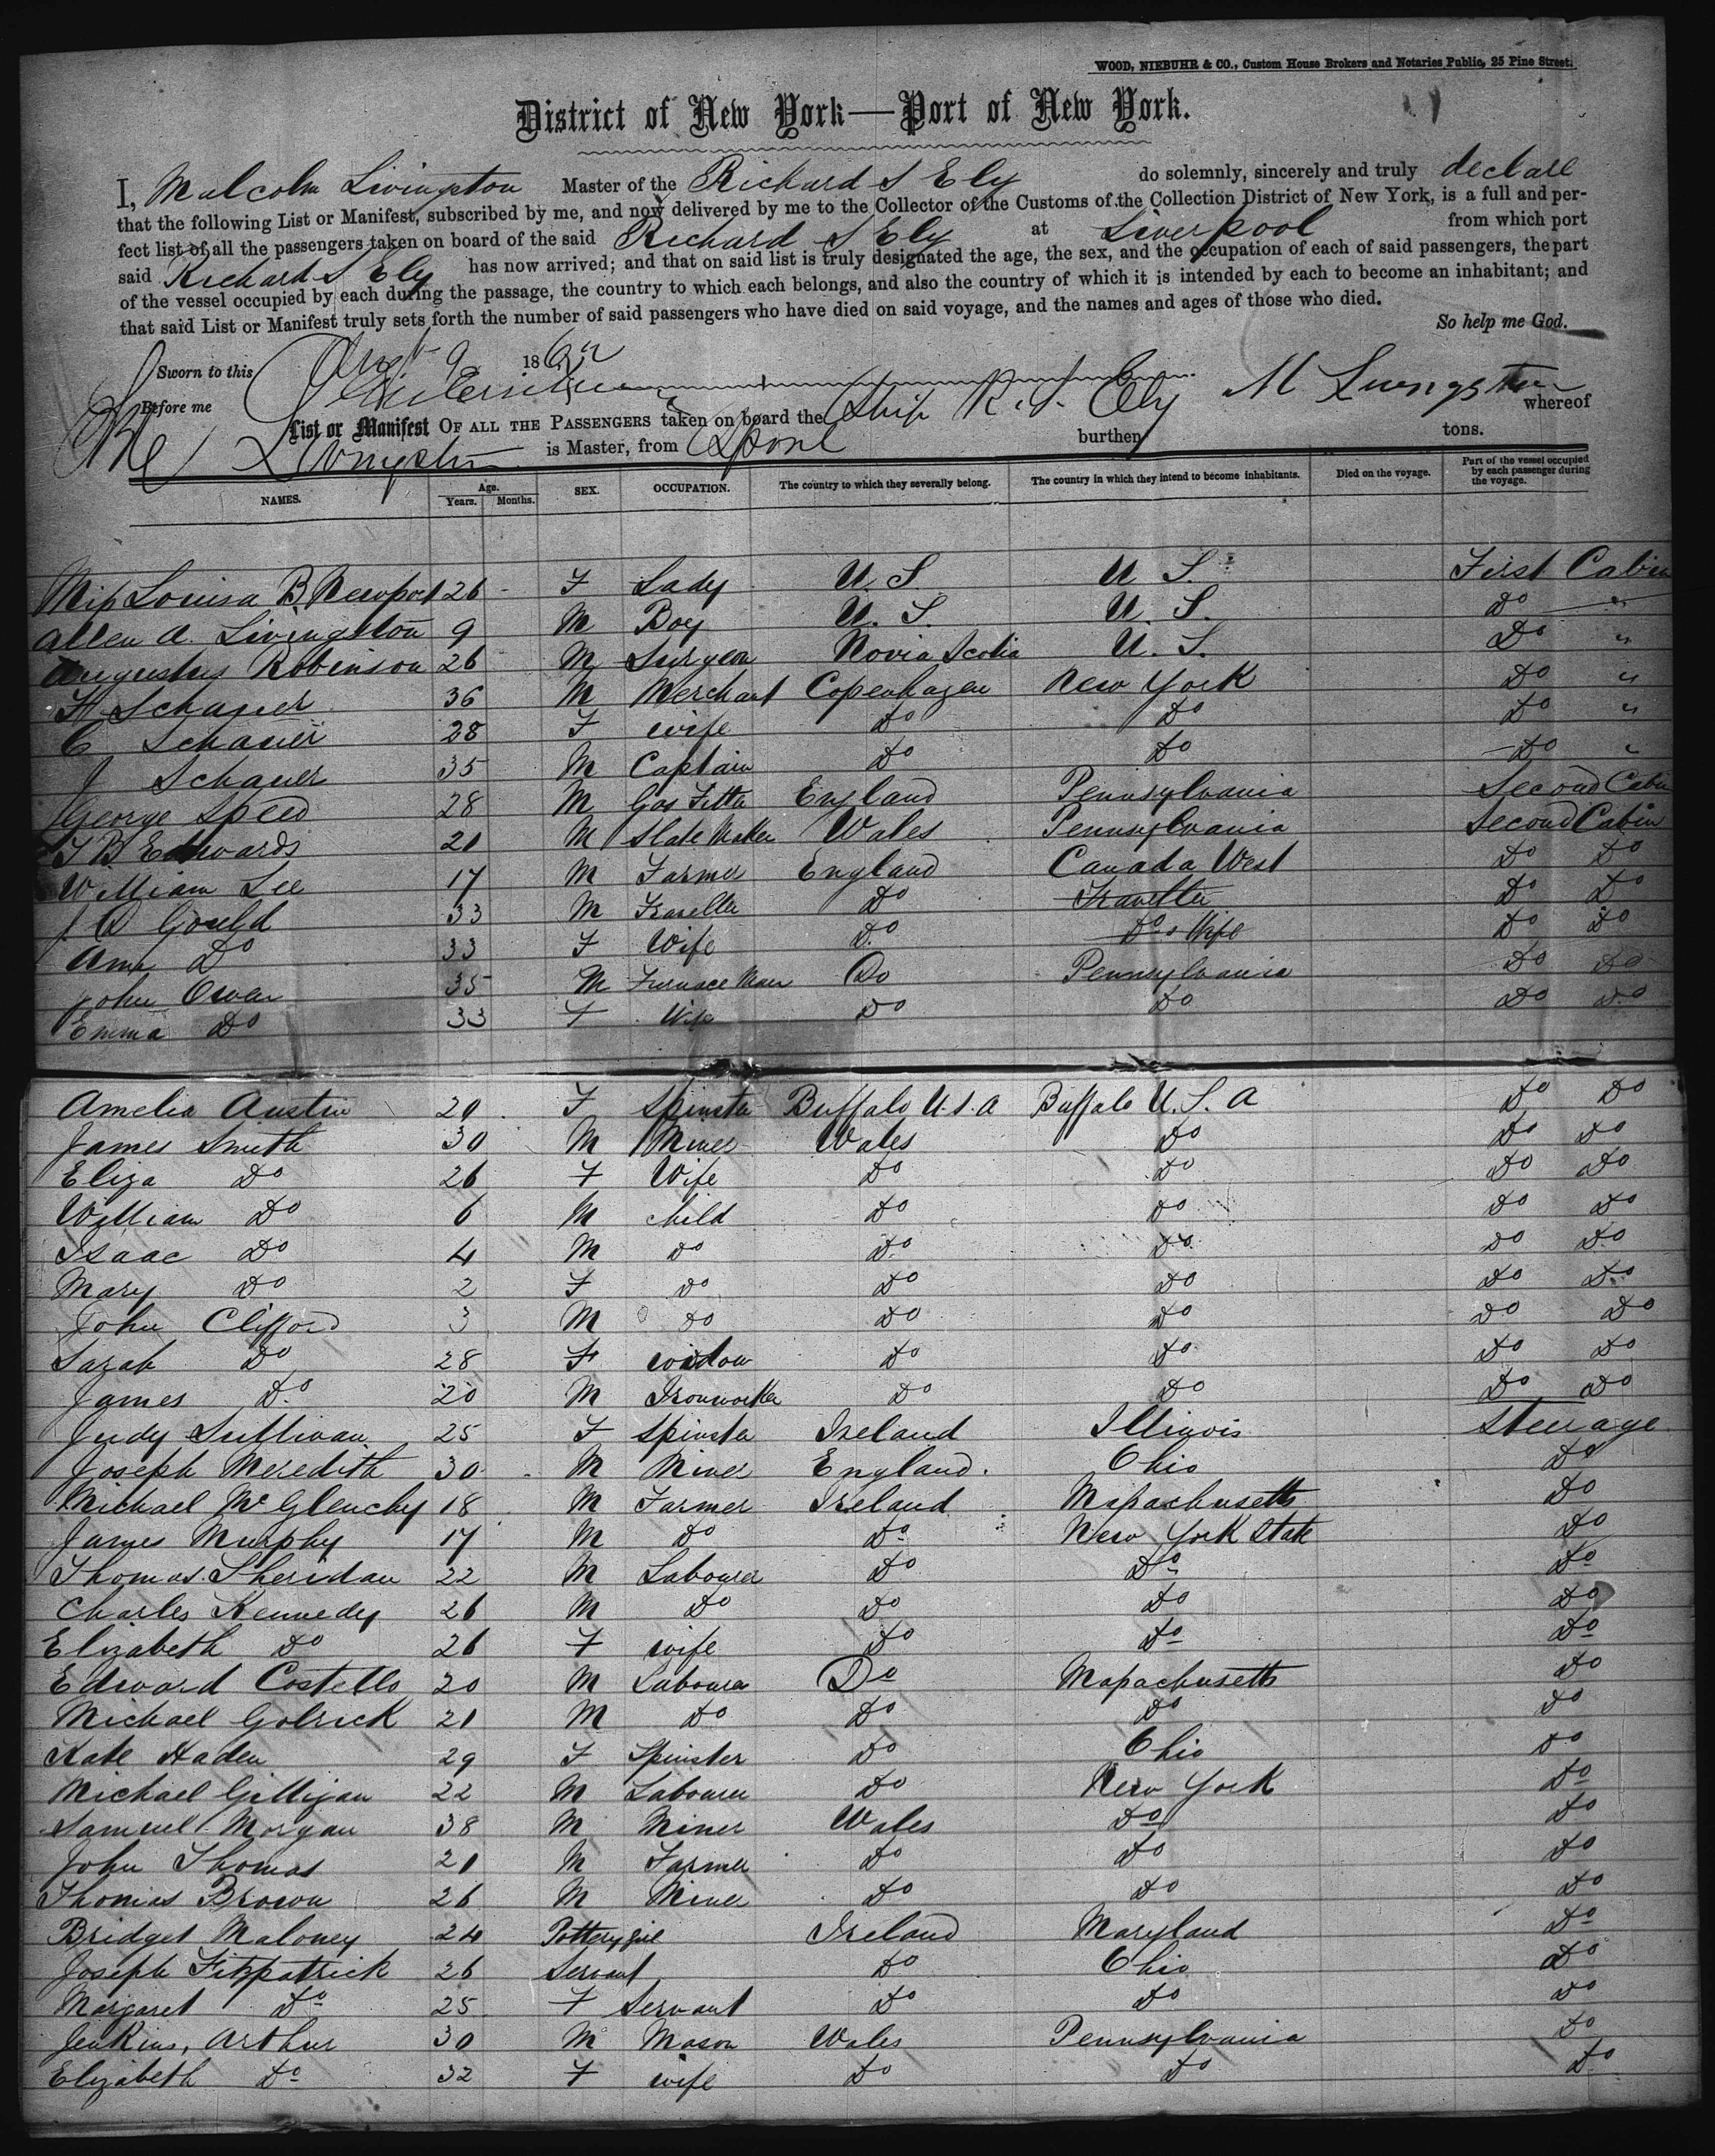 WOOD, NIEBUHR & CO., Custom House Brokers and Notaries Public, 25 Pine Street.
District of New York—Port of New York.
I, Malcolm Livingston Master of the Richard S Ely do solemnly, sincerely and truly declare
that the following List or Manifest, subscribed by me, and now delivered by me to the Collector of the Customs of the Collection District of New York, is a full and per-
fect list of all the passengers taken on board of the said Richard S Ely at Liverpool from which port
said Richard S Ely has now arrived; and that on said list is truly designated the age, the sex, and the occupation of each of said passengers, the part
of the vessel occupied by each during the passage, the country to which each belongs, and also the country of which it is intended by each to become an inhabitant; and
that said List or Manifest truly sets forth the number of said passengers who have died on said voyage, and the names and ages of those who died.
So help me God.
Sworn to this 9 186
Before me M Livingston
List or Manifest OF ALL THE PASSENGERS taken on board the Ship R. S. Ely whereof
Livingston is Master, from burthen tons.
NAMES. Age. Years. Months. SEX. OCCUPATION. The country to which they severally belong. The country in which they intend to become inhabitants. Died on the voyage. Part of the vessel occupied by each passenger during the voyage.
Miss Louisa B. Newport 26 F Lady U. S. U S. First Cabin
Allen A. Livingston 9 M Boy U. S. U. S. Do "
Augustus Robinson 26 M Surgeon Novia Scotia U. S. Do "
H Schauer 36 M Merchant Copenhagen New York Do "
C Schauer 28 F wife Do Do Do "
J Schauer 35 M Captain Do Do Do "
George Speed 28 M Gas Fitter England Pennsylvania Second Cabin
T B Edwards 21 M Slate Maker Wales Pennsylvania Second Cabin
William Lee 17 M Farmer England Canada West Do Do
J. D Gould 33 M Traveller Do Traveller Do Do
Ann Do 33 F Wife Do Do Wife Do Do
John Owen 35 M Furnace Man Do Pennsylvania Do Do
Emma Do 33 F Wife Do Do Do Do
Amelia Austin 20 F Spinster Buffalo U. S. A Buffalo U. S. A Do Do
James Smith 30 M Miner Wales Do Do Do
Eliza Do 26 F Wife Do Do Do Do
William Do 6 M child Do Do Do Do
Isaac Do 4 M Do Do Do Do Do
Mary Do 2 F Do Do Do Do Do
John Clifford 3 M Do Do Do Do Do
Sarah Do 28 F widow Do Do Do Do
James Do. 20 M Ironworker Do Do Do Do
Judy Sullivan 25 F Spinster Ireland Illinois Steerage
Joseph Meredith 30 M Miner England. Ohio Do
Michael McGlenchy 18 M Farmer Ireland Massachusetts Do
James Murphy 17 M Do Do New York State Do
Thomas Sheridan 22 M Labourer Do Do Do
Charles Kennedy 26 M Do Do Do Do
Elizabeth Do 26 F wife Do Do Do
Edward Costello 20 M Labourer Do Massachusetts Do
Michael Golrick 21 M Do Do Do Do
Kate Haden 29 F Spinster Do Ohio Do
Michael Gilligan 22 M Labourer Do New York Do
Samuel Morgan 38 M Miner Wales Do Do
John Thomas 21 M Farmer Do Do Do
Thomas Brown 26 M Miner Do Do Do
Bridget Maloney 24 Pottery girl Ireland Maryland Do
Joseph Fitzpatrick 26 Servant Do Ohio Do
Margaret Do 25 F Servant Do Do Do
Jenkins, Arthur 30 M Mason Wales Pennsylvania Do
Elizabeth Do 32 F wife Do Do Do